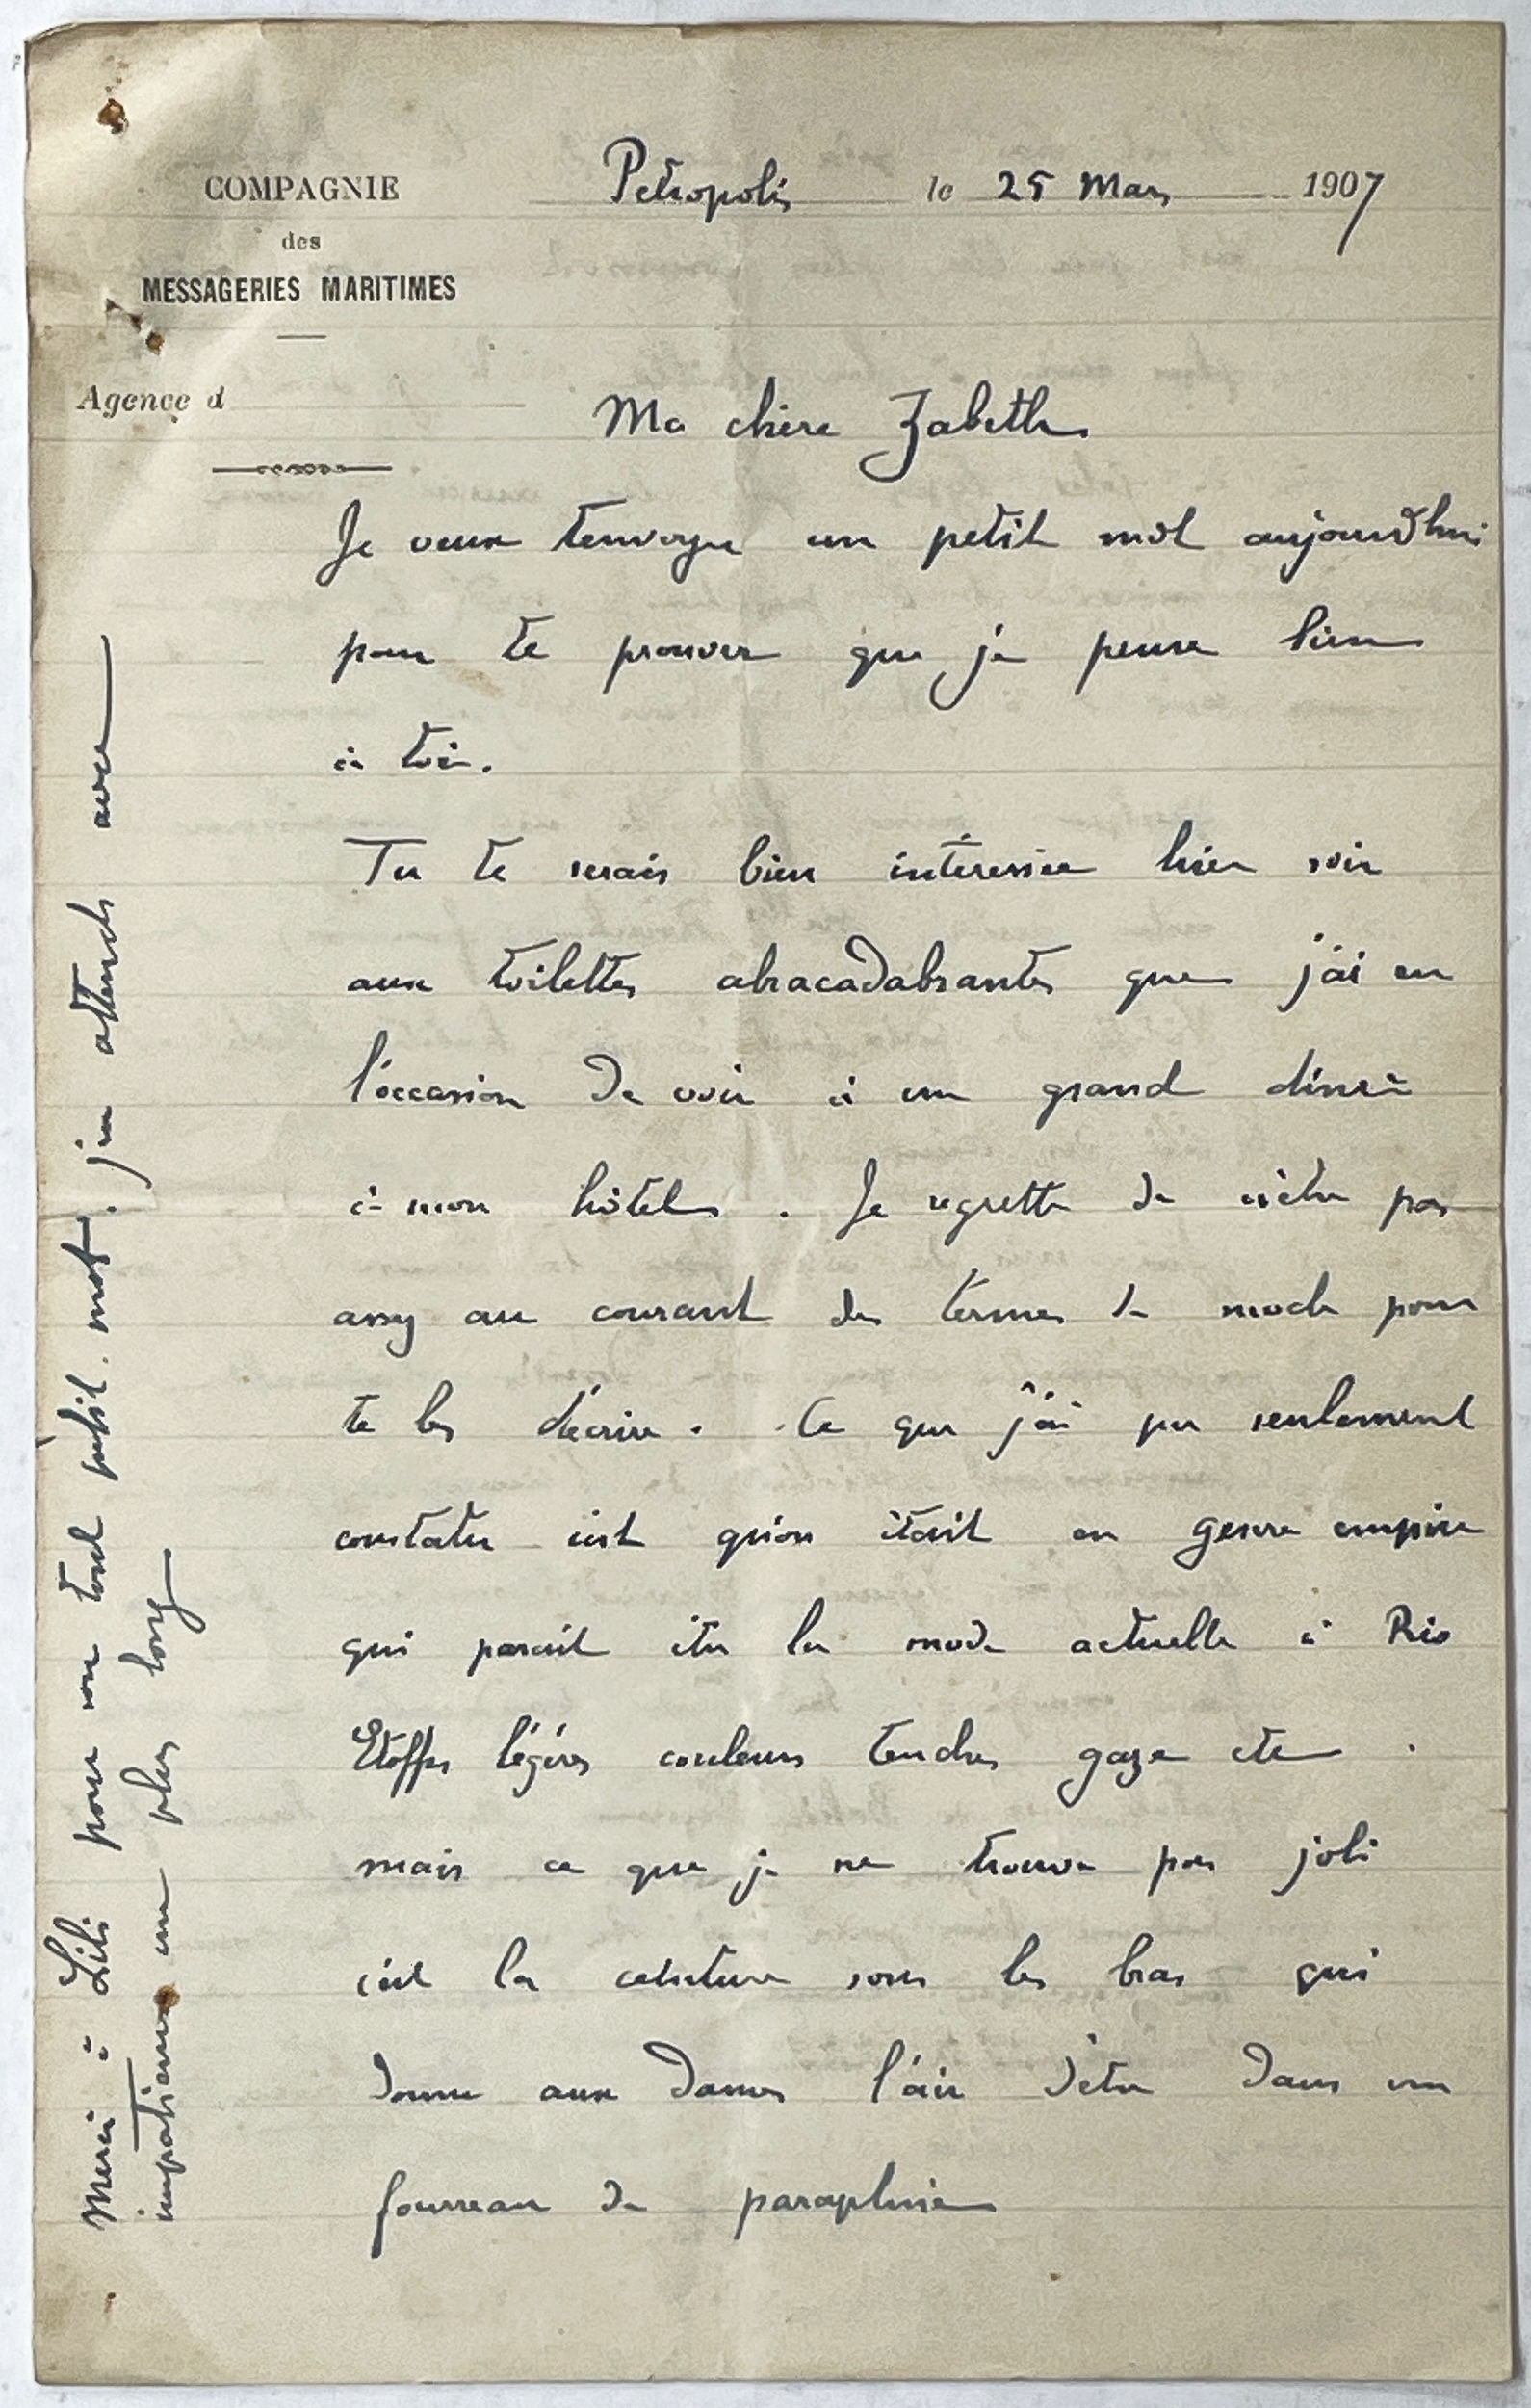 COMPAGNIE
des
MESSAGERIES MARITIMES
Agence d
Petropolis le 25 Mars 1907
Ma chère Zabeth
Je veux t'envoyer un petit mot aujourd'hui
pour te prouver que je pense bien
à toi.
Tu te serais bien intéressée hier soir
aux toilettes abracadabrantes que j'ai eu
l'occasion de voir à un grand dîner
à mon hôtel. Je regrette de n'être pas
assez au courant des termes de mode pour
te les décrire. Ce que j'ai pu seulement
constater c'est qu'on était en genre empire
qui parait être la mode actuelle à Rio
Etoffes légères couleurs tendres gaze etc.
mais ce que je ne trouve pas joli
c'est la ceinture sous les bras qui
donne aux dames l'air d'être dans un
fourreau de parapluie
Merci à Lili pour son tout petit mot. j'en attends avec
impatience un plus long